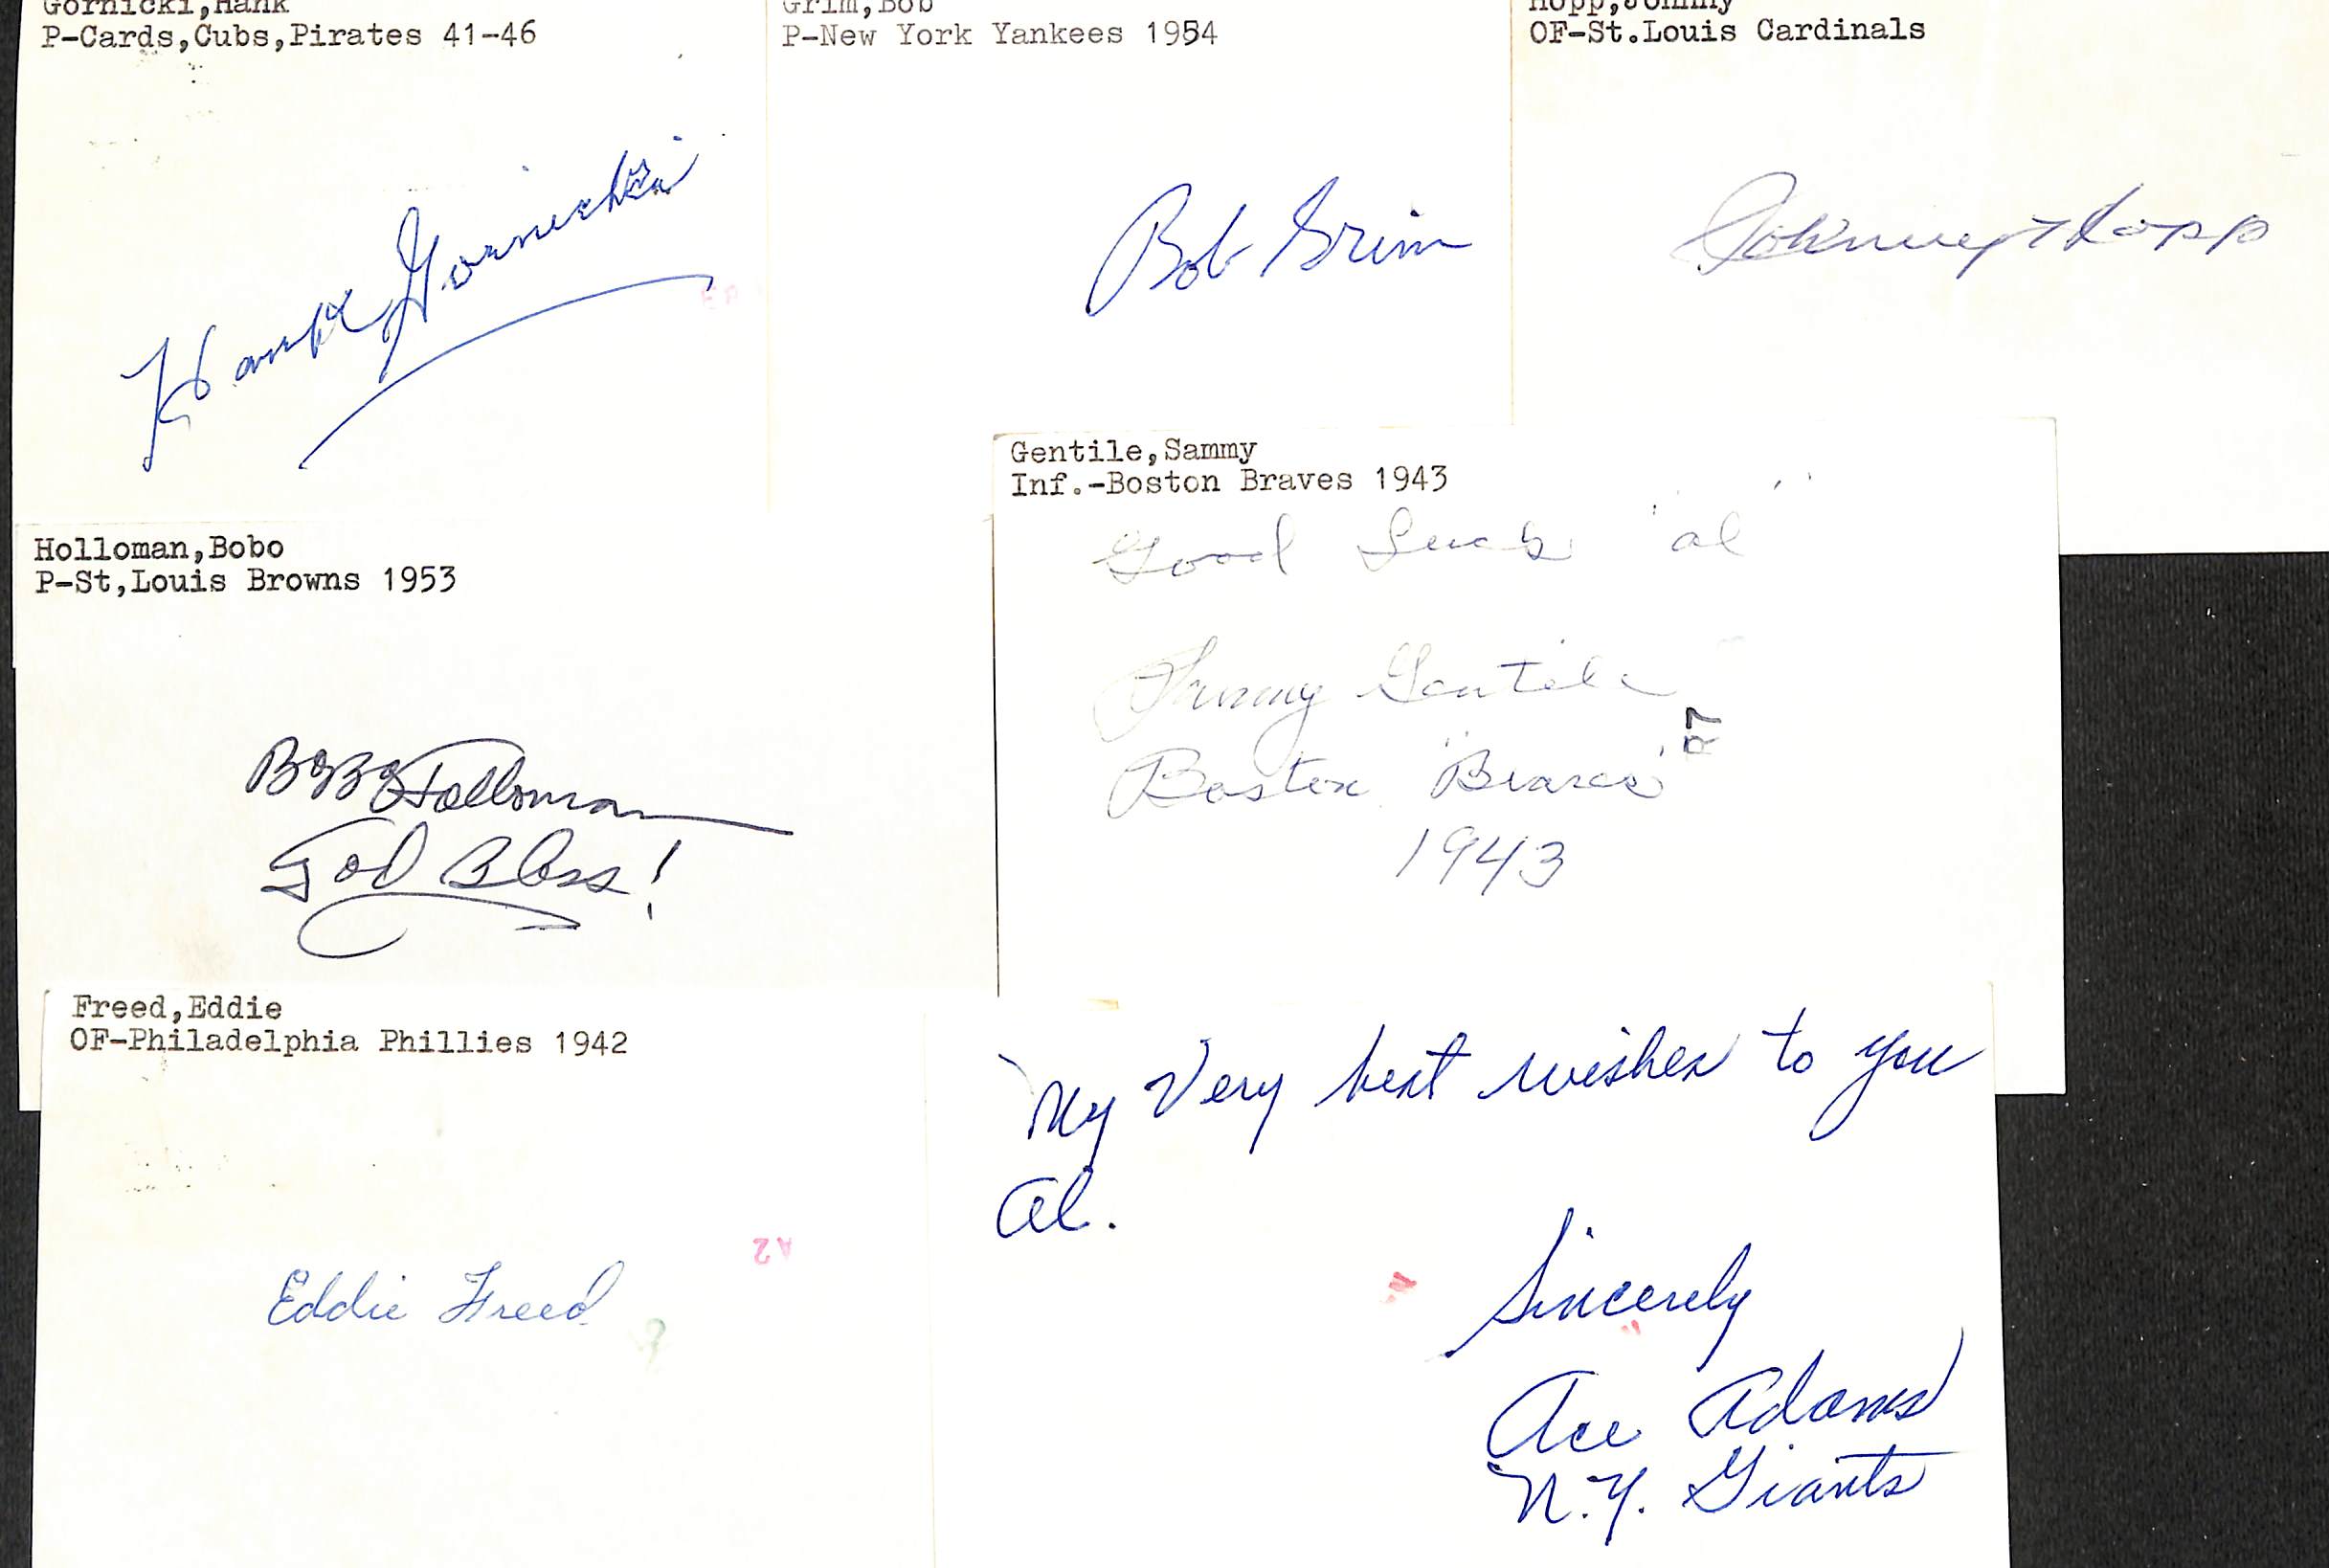 Gornicki,Hank
P-Cards,Cubs,Pirates 41-46
Hank Gornicki
Grim,Bob
P-New York Yankees 1954
Bob Grim
Hopp,Johnny
OF-St.Louis Cardinals
Johnny Hopp
Holloman,Bobo
P-St,Louis Browns 1953
BoBo Holloman
God Bless!
Gentile,Sammy
Inf.-Boston Braves 1943
Good Luck "Al"
Sammy Gentile
Boston "Braves"
1943
R7
Freed,Eddie
OF-Philadelphia Phillies 1942
A2
Eddie Freed
My Very best wishes to you
Al.
Sincerely
Ace Adams
N.Y. Giants